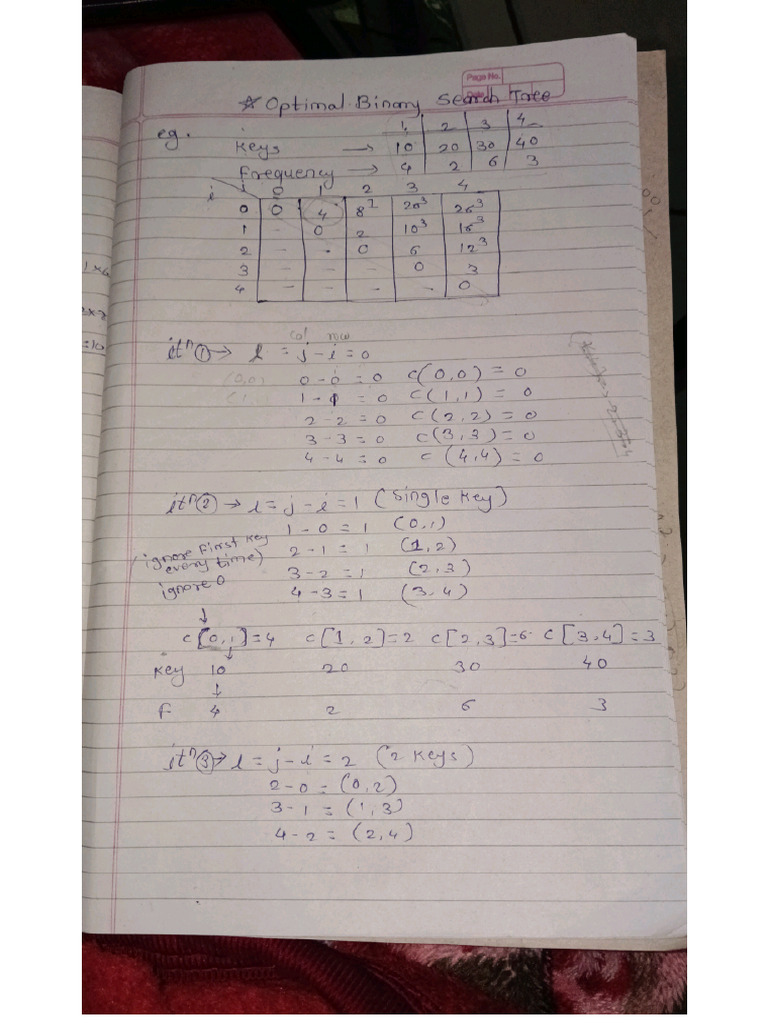 Page No.
Date
☆ Optimal Binary Search Tree
eg.
1 2 3 4
Keys → 10 20 30 40
Frequency → 4 2 6 3
i j 0 1 2 3 4
0 0 4 8¹ 20³ 26³
1 - 0 2 10³ 16³
2 - - 0 6 12³
3 - - - 0 3
4 - - - - 0
col row
itⁿ ① → l = j - i = 0
0 - 0 = 0 C(0,0) = 0
1 - 1 = 0 C(1,1) = 0
2 - 2 = 0 C(2,2) = 0
3 - 3 = 0 C(3,3) = 0
4 - 4 = 0 C(4,4) = 0
itⁿ ② → l = j - i = 1 (Single Key)
1 - 0 = 1 (0,1)
2 - 1 = 1 (1,2)
3 - 2 = 1 (2,3)
4 - 3 = 1 (3,4)
ignore First Key
every time)
ignore 0
↓
C[0,1] = 4 C[1,2] = 2 C[2,3] = 6 C[3,4] = 3
Key 10 20 30 40
↓
F 4 2 6 3
itⁿ ③ → l = j - i = 2 (2 Keys)
2 - 0 = (0,2)
3 - 1 = (1,3)
4 - 2 = (2,4)